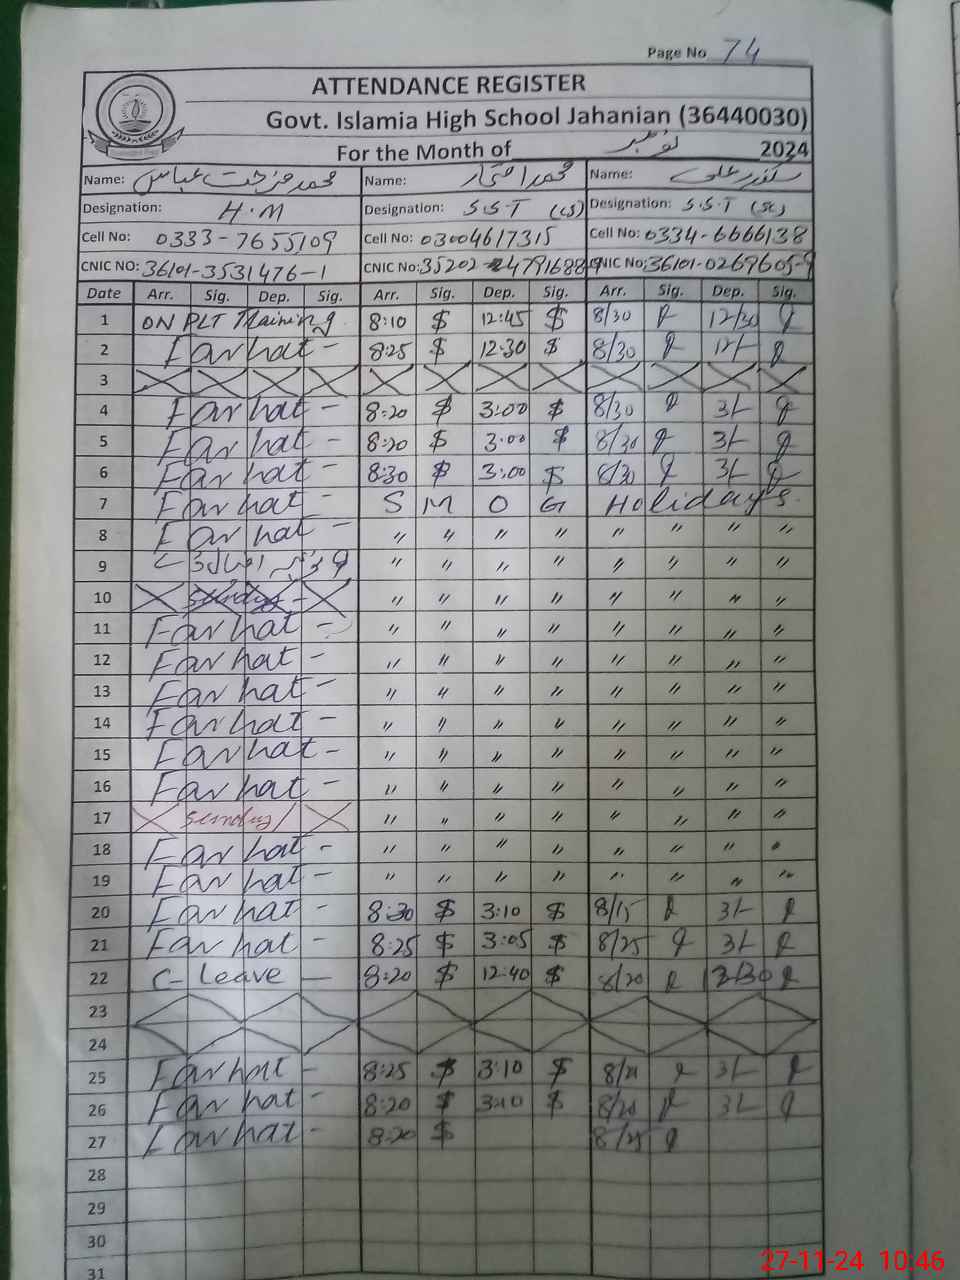 Page No 74
ATTENDANCE REGISTER
Govt. Islamia High School Jahanian (36440030)
For the Month of نومبر 2024
Name: محمد فرحت عباس Name: محمد افتخار Name: سکندر علی
Designation: H.M Designation: S.S.T (CS) Designation: S.S.T (SC)
Cell No: 0333-7655109 Cell No: 03004617315 Cell No: 0334-6666138
CNIC NO: 36101-3531476-1 CNIC NO: 35202 CNIC NO: 36101-0269605-9
Date Arr. Sig. Dep. Sig. Arr. Sig. Dep. Sig. Arr. Sig. Dep. Sig.
1 ON PLT Training 8:10 $ 12:45 $ 8/30 12/30
2 Farhat - 8:25 $ 12:30 $ 8/30 12/-
3
4 Farhat - 8:20 $ 3:00 $ 8/30 3/-
5 Farhat - 8:20 $ 3:00 $ 8/30 3/-
6 Farhat - 8:30 $ 3:00 $ 8/30 3/-
7 Farhat - S M O G Holidays.
8 Farhat - " " " " " " " "
9 " " " " " " " "
10 Sunday - " " " " " " " "
11 Farhat - " " " " " " " "
12 Farhat - " " " " " " " "
13 Farhat - " " " " " " " "
14 Farhat - " " " " " " " "
15 Farhat - " " " " " " " "
16 Farhat - " " " " " " " "
17 Sunday " " " " " " " "
18 Farhat - " " " " " " " "
19 Farhat - " " " " " " " "
20 Farhat - 8:30 $ 3:10 $ 8/15 3/-
21 Farhat - 8:25 $ 3:05 $ 8/25 3/-
22 C-Leave - 8:20 $ 12:40 $ 8/20 12/30
23
24
25 Farhat - 8:25 $ 3:10 $ 3/-
26 Farhat - 8:20 $ 3:10 $ 8/20 3/-
27 Farhat - 8:20 $ 8/25
28
29
30
31
27-11-24 10:46